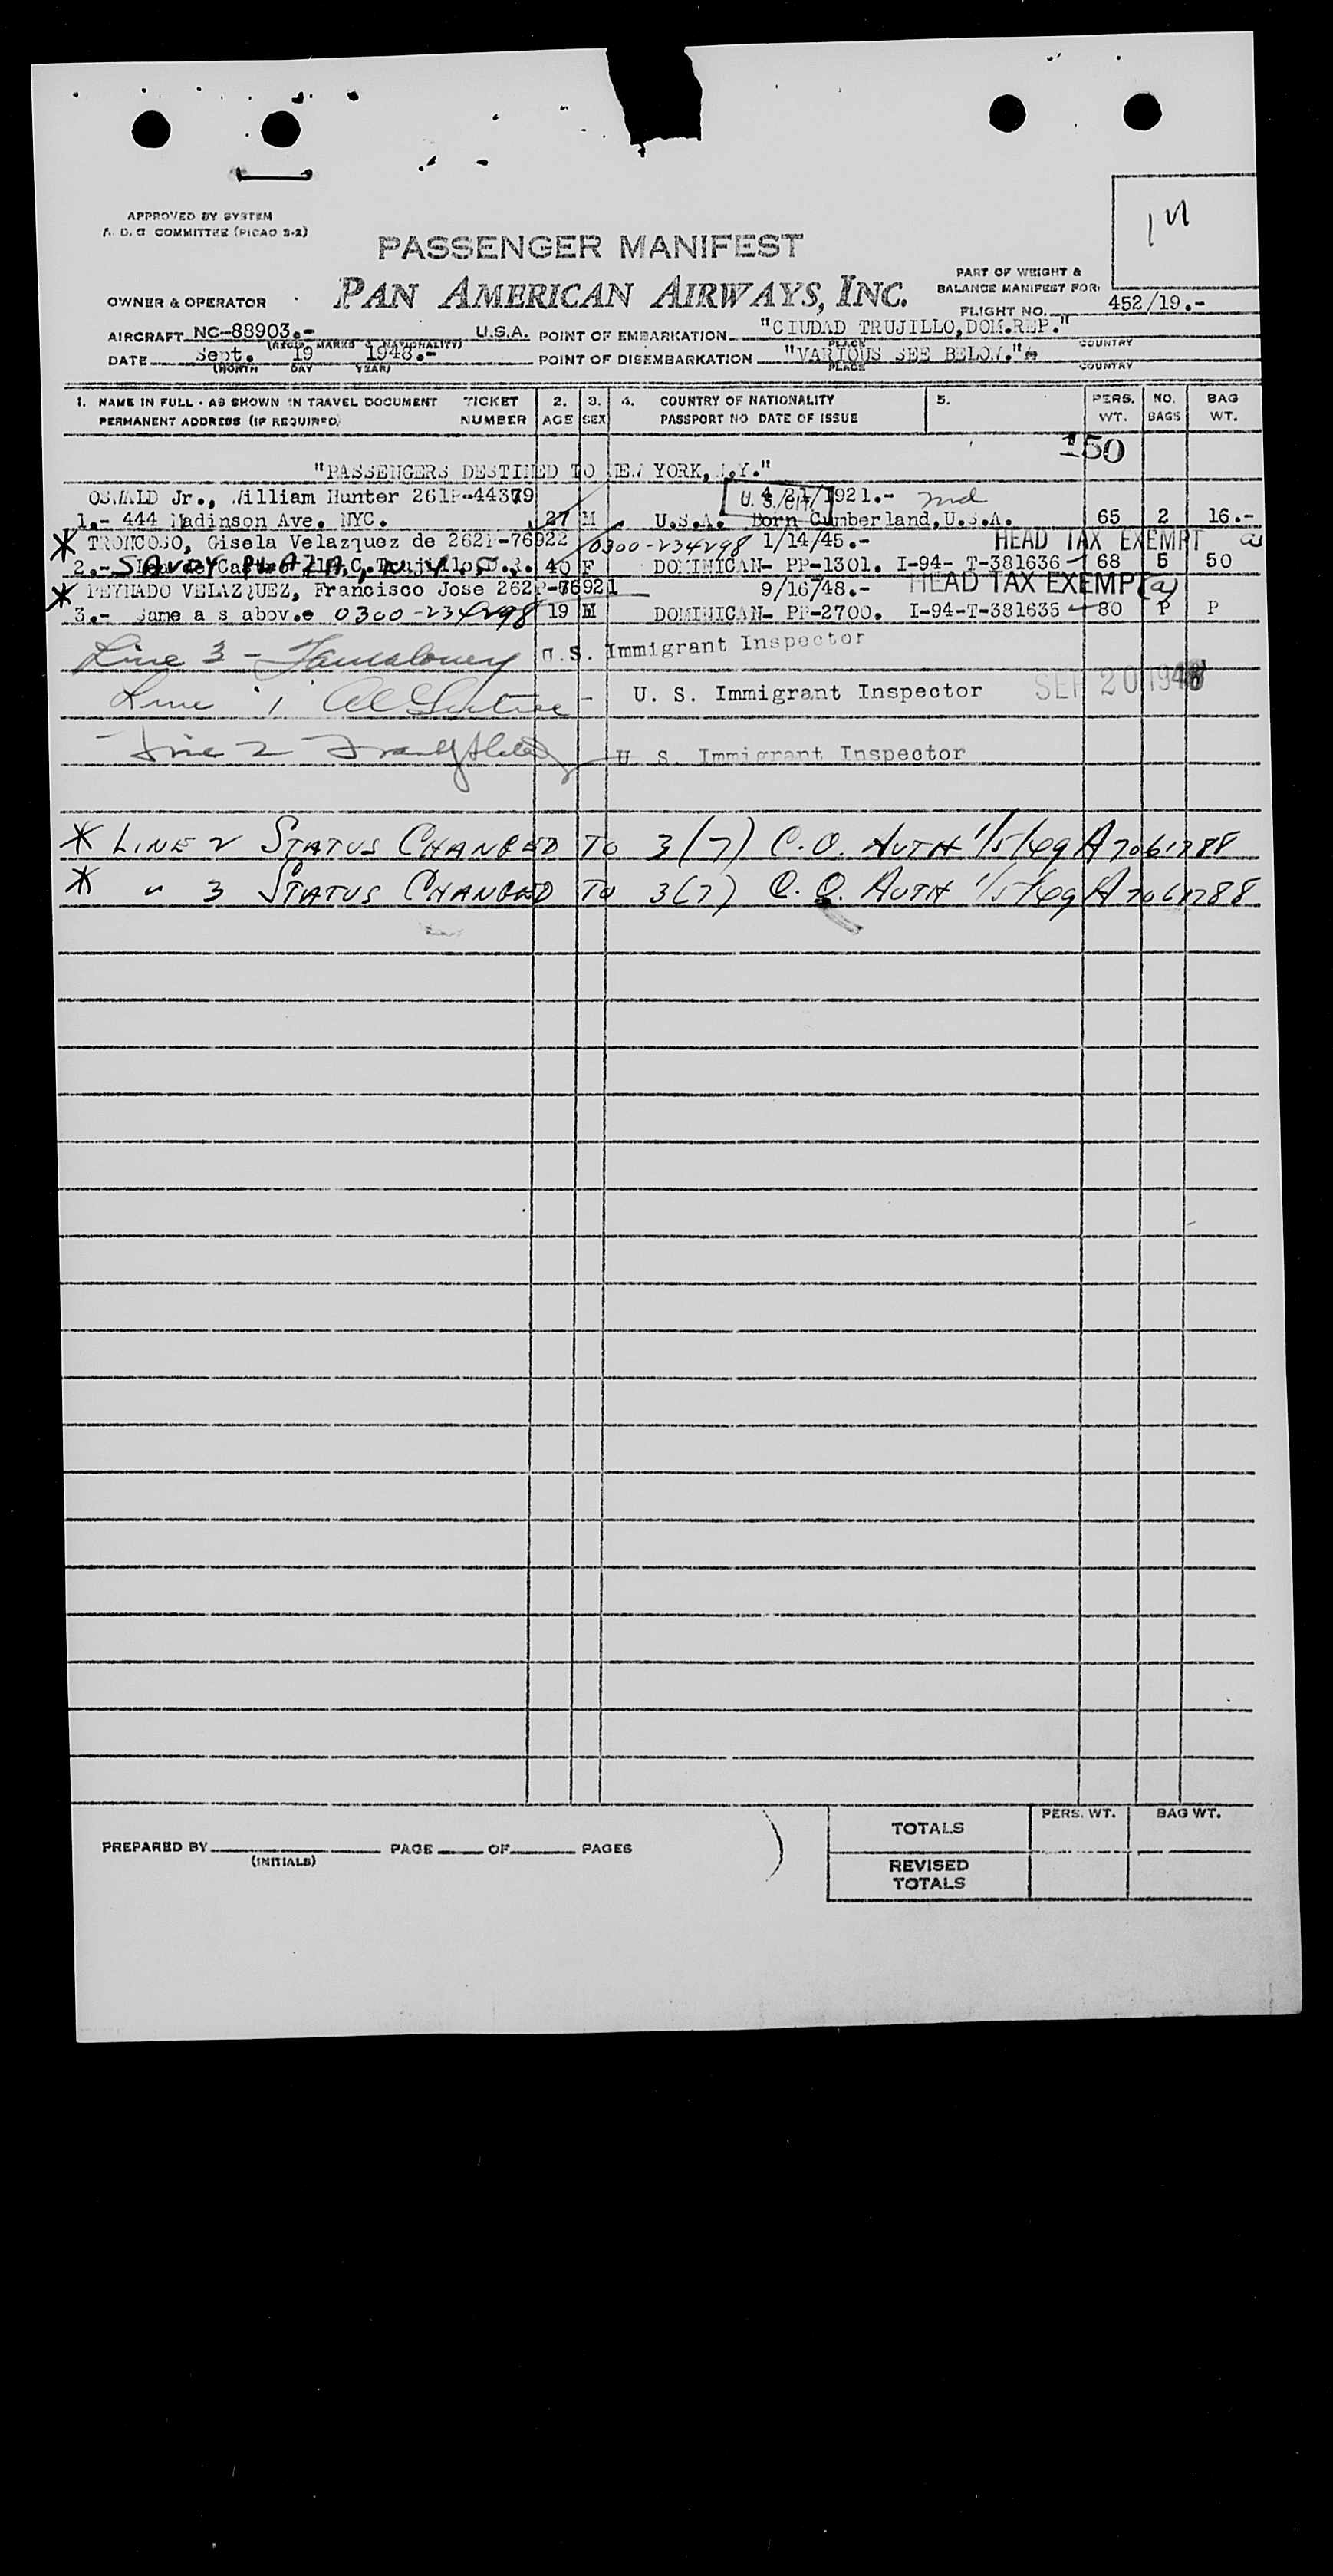 1
APPROVED BY SYSTEM
A. D. C COMMITTEE (PICAO 2-2)
PASSENGER MANIFEST
PAN AMERICAN AIRWAYS, INC.
OWNER & OPERATOR
PART OF WEIGHT &
BALANCE MANIFEST FOR:
FLIGHT NO. 452/19.-
AIRCRAFT NC-88903.- U.S.A. POINT OF EMBARKATION "CIUDAD TRUJILLO,DOM.REP."
(REGIS. MARKS & NATIONALITY) PLACE COUNTRY
DATE Sept. 19 1948.- POINT OF DISEMBARKATION "VARIOUS SEE BELOW."
(MONTH DAY YEAR) PLACE COUNTRY
1. NAME IN FULL - AS SHOWN IN TRAVEL DOCUMENT TICKET 2. 3. 4. COUNTRY OF NATIONALITY 5. PERS. NO. BAG
PERMANENT ADDRESS (IF REQUIRED) NUMBER AGE SEX PASSPORT NO DATE OF ISSUE WT. BAGS WT.
150
"PASSENGERS DESTINED TO NEW YORK, N.Y."
OSWALD Jr., William Hunter 261P-44379 1921.- md
U. S./Cit
1.- 444 Madinson Ave. NYC. 27 M U.S.A. Born Cumberland,U.S.A. 65 2 16.-
* TRONCOSO, Gisela Velazquez de 262P-76922 0300-234298 1/14/45.- HEAD TAX EXEMPT
2.- SAVOY PLAZA, 40 F DOMINICAN- PP-1301. I-94- T-381636 68 5 50
* PEYNADO VELAZQUEZ, Francisco Jose 262P-76921 9/16/48.- HEAD TAX EXEMPT (a)
3.- Same a s abov.e 0300-234298 19 M DOMINICAN- PP-2700. I-94-T-381635 80 P P
Line 3 - U.S. Immigrant Inspector
Line 1 - U. S. Immigrant Inspector SEP 20 1948
Line 2 U. S. Immigrant Inspector
* LINE 2 STATUS CHANGED TO 3(7) C.O. AUTH 1/5/49 A7061788
* " 3 STATUS CHANGED TO 3(7) C.O. AUTH 1/5/49 A7061788
PERS. WT. BAG WT.
TOTALS
PREPARED BY PAGE OF PAGES
(INITIALS)
REVISED
TOTALS